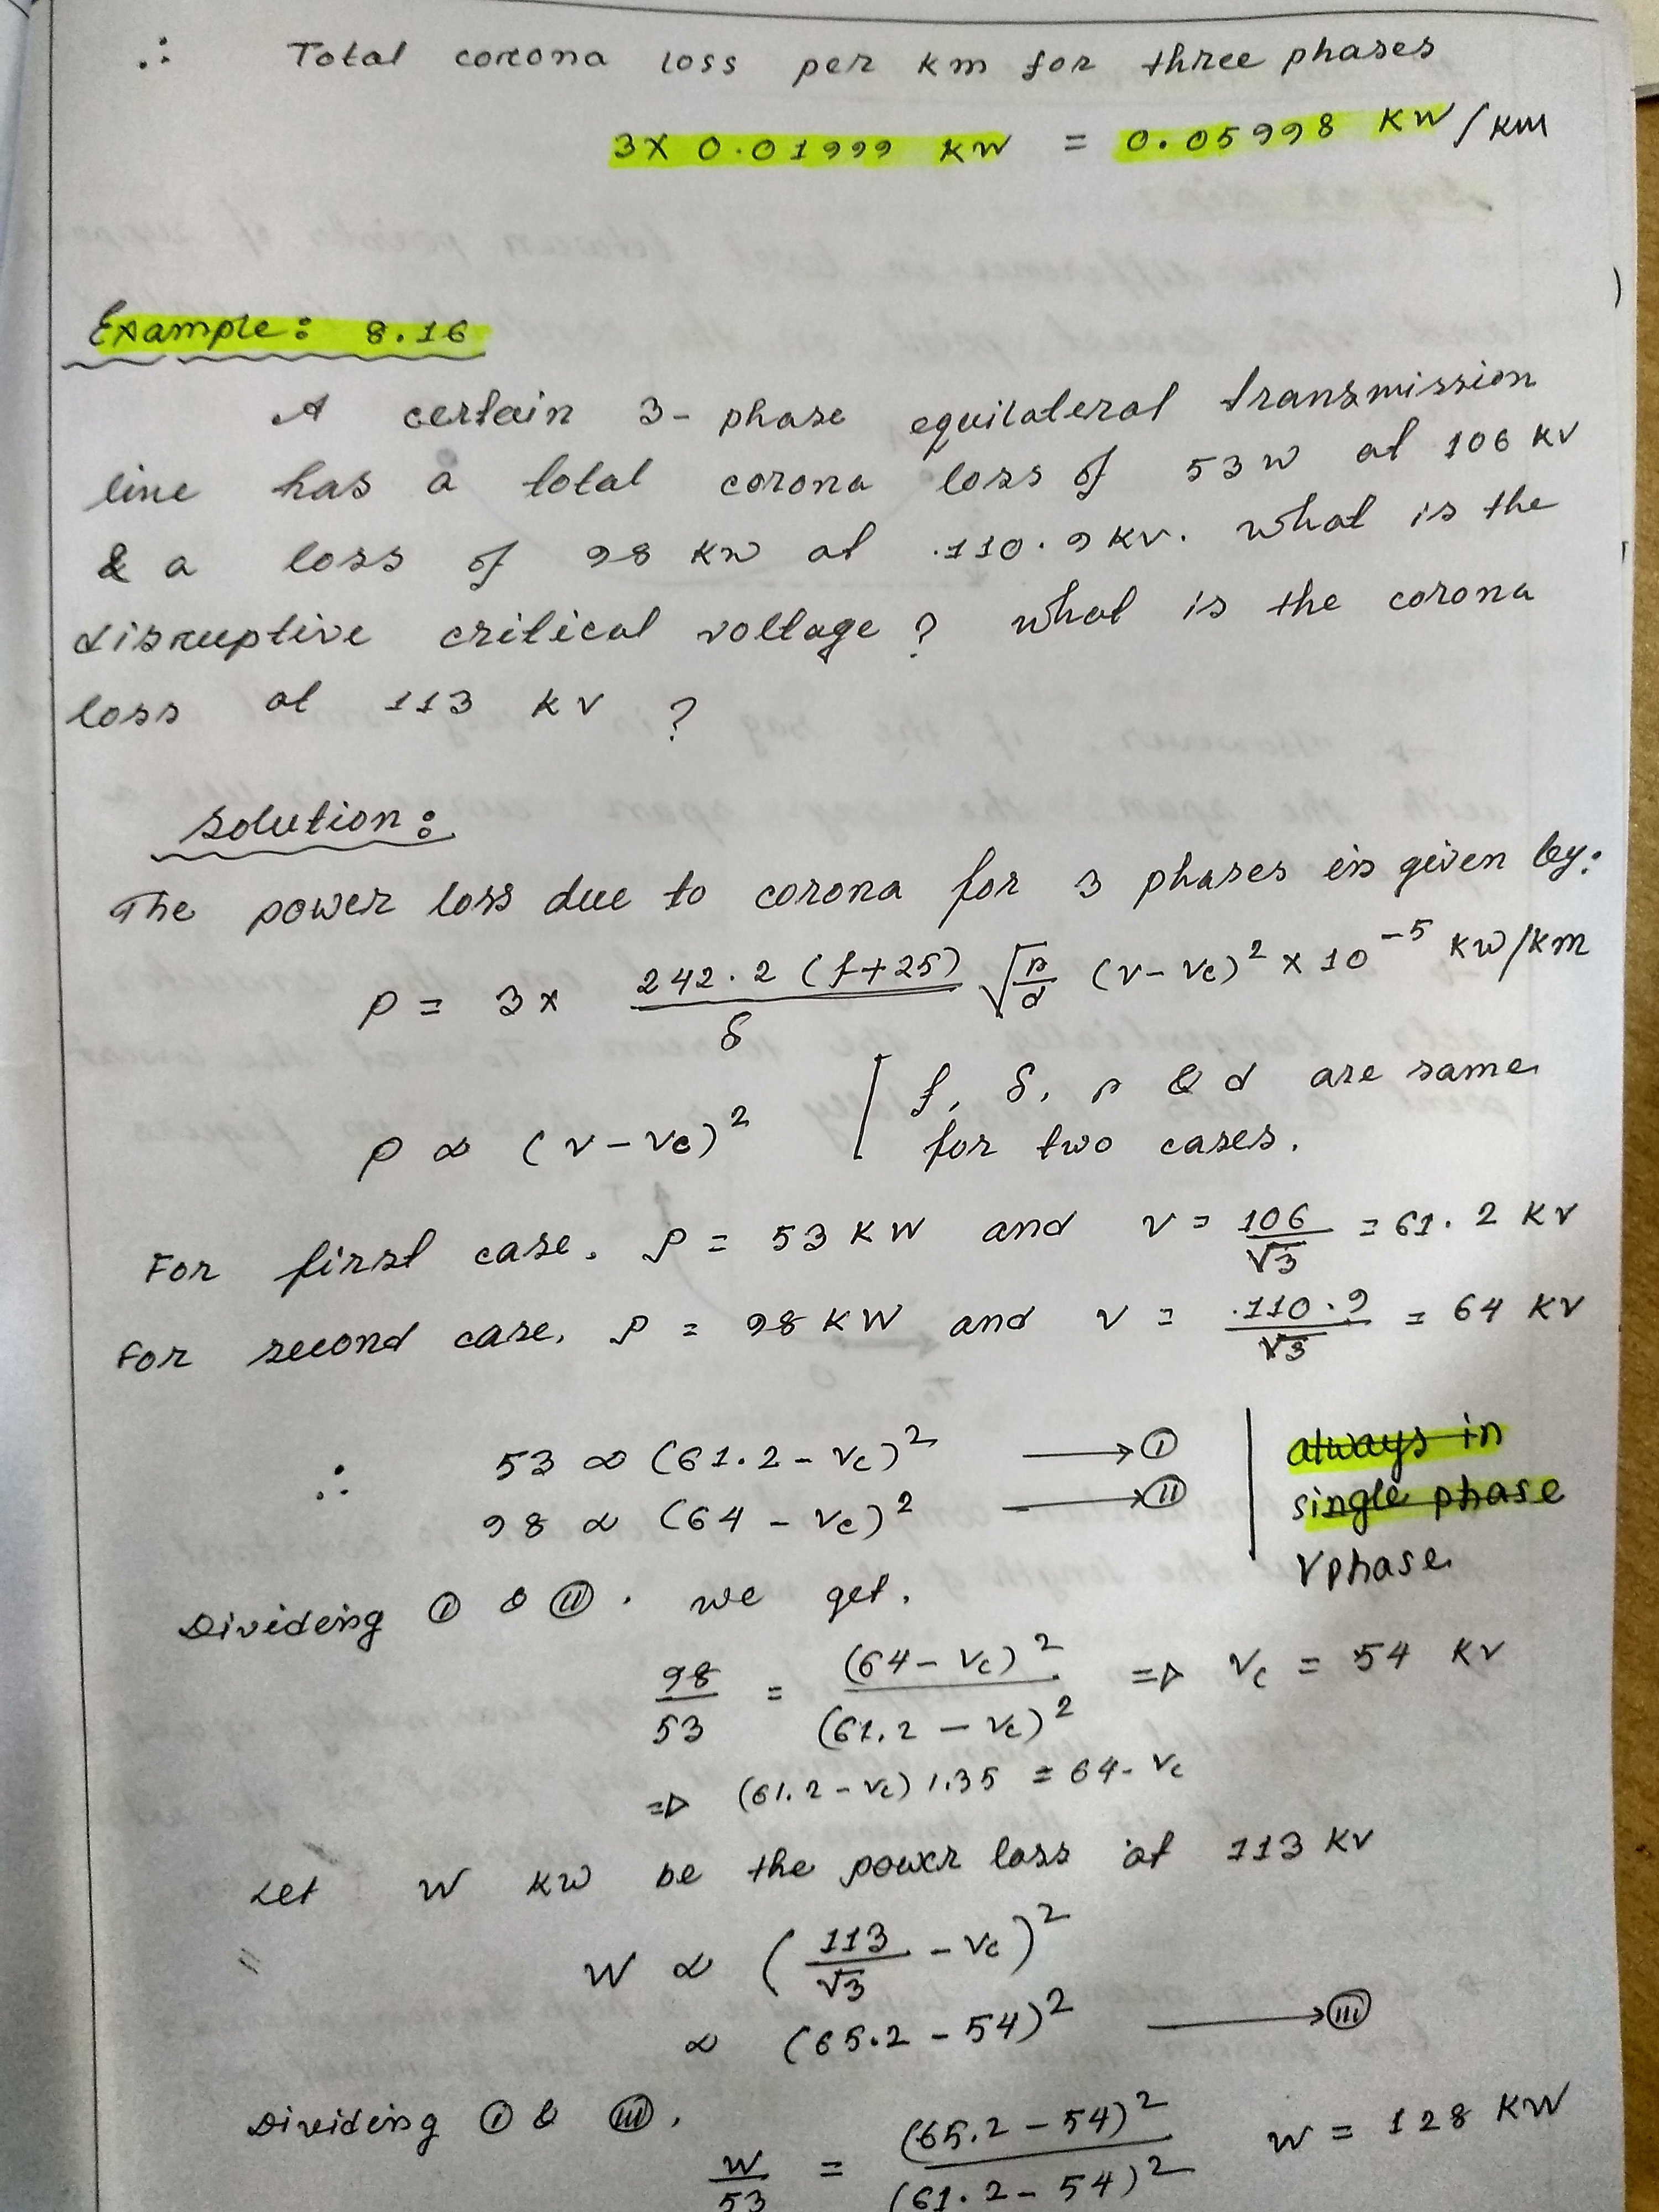 ∴ Total corona loss per km for three phases
3X 0.01999 KW = 0.05998 KW/KM
Example: 8.16
A certain 3-phase equilateral transmission
line has a total corona loss of 53W at 106 KV
& a loss of 98 KW at 110.9KV. what is the
disruptive critical voltage? what is the corona
loss at 113 KV ?
Solution:
The power loss due to corona for 3 phases is given by:
P = 3× 242.2 (f+25)/δ √(r/d) (V-Vc)² × 10⁻⁵ KW/KM
P ∝ (V-Vc)² [ f, δ, r & d are same
for two cases.
For first case. P = 53 KW and V = 106/√3 = 61.2 KV
For second case, P = 98 KW and V = 110.9/√3 = 64 KV
∴ 53 ∝ (61.2 - Vc)² → (i)
98 ∝ (64 - Vc)² → (ii)
always in
single phase
Vphase
Dividing (i) & (ii). we get.
98/53 = (64-Vc)²/(61.2-Vc)² => Vc = 54 KV
=> (61.2-Vc) 1.35 = 64-Vc
Let W KW be the power loss at 113 KV
W ∝ (113/√3 - Vc)²
∝ (65.2-54)² → (iii)
Dividing (i) & (iii).
W/53 = (65.2-54)²/(61.2-54)² W = 128 KW